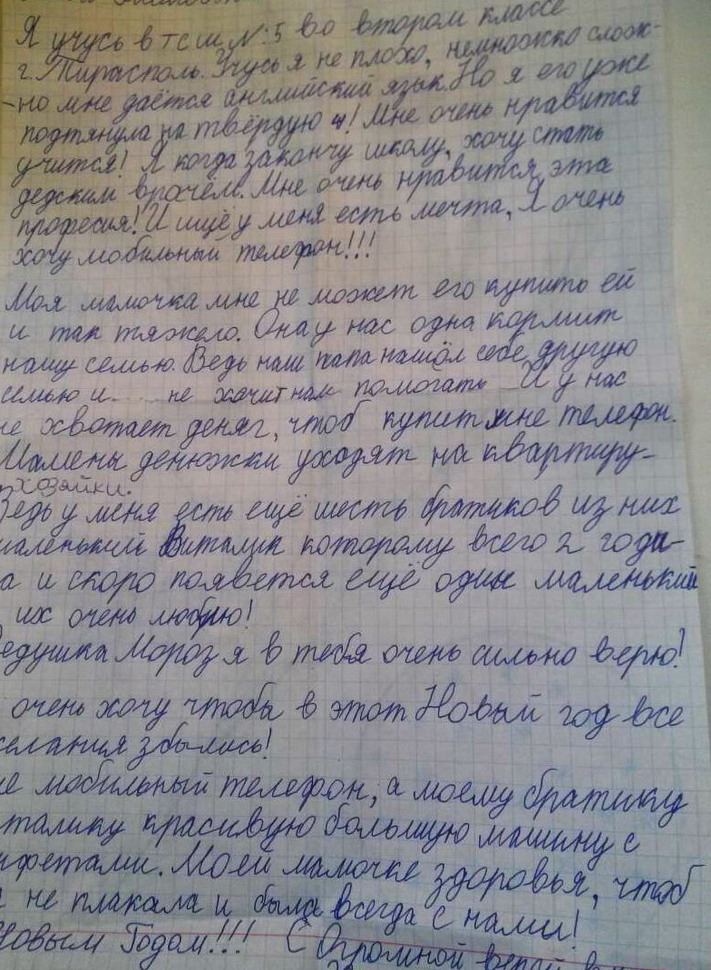 Я учусь в тсш №:5 во втором классе
г. Тирасполь. Учусь я не плохо, немножко слож-
-но мне даётся английский язык. Но я его уже
подтянула на твёрдую 4! Мне очень нравится
учится! Я когда закончу школу, хочу стать
дедским врачём. Мне очень нравится эта
професия! И ищё у меня есть мечта, Я очень
хочу мобильный телефон!!!
Моя мамочка мне не может его купить ей
и так тяжело. Она у нас одна кормит
нашу семью. Ведь наш папа нашёл себе другую
семью и.... не хачит нам помогать И у нас
не хвотает деняг, чтоб купит мне телефон.
Мамены денюжки уходят на квартиру-
хозяйки.
Ведь у меня есть ещё шесть братиков из них
маленький Виталик которому всего 2 годи-
а и скоро появется ещё один маленький
их очень люблю!
едушка Мороз я в тебя очень сильно верю!
очень хочу чтобы в этот Новый год все
елания збылись!
не мобильный телефон, а моему братику
талику красивую большую машину с
нфетами. Моей мамочке здоровья, чтоб
не плакала и была всегда с нами!
Новым Годом!!! С Огромной верой в